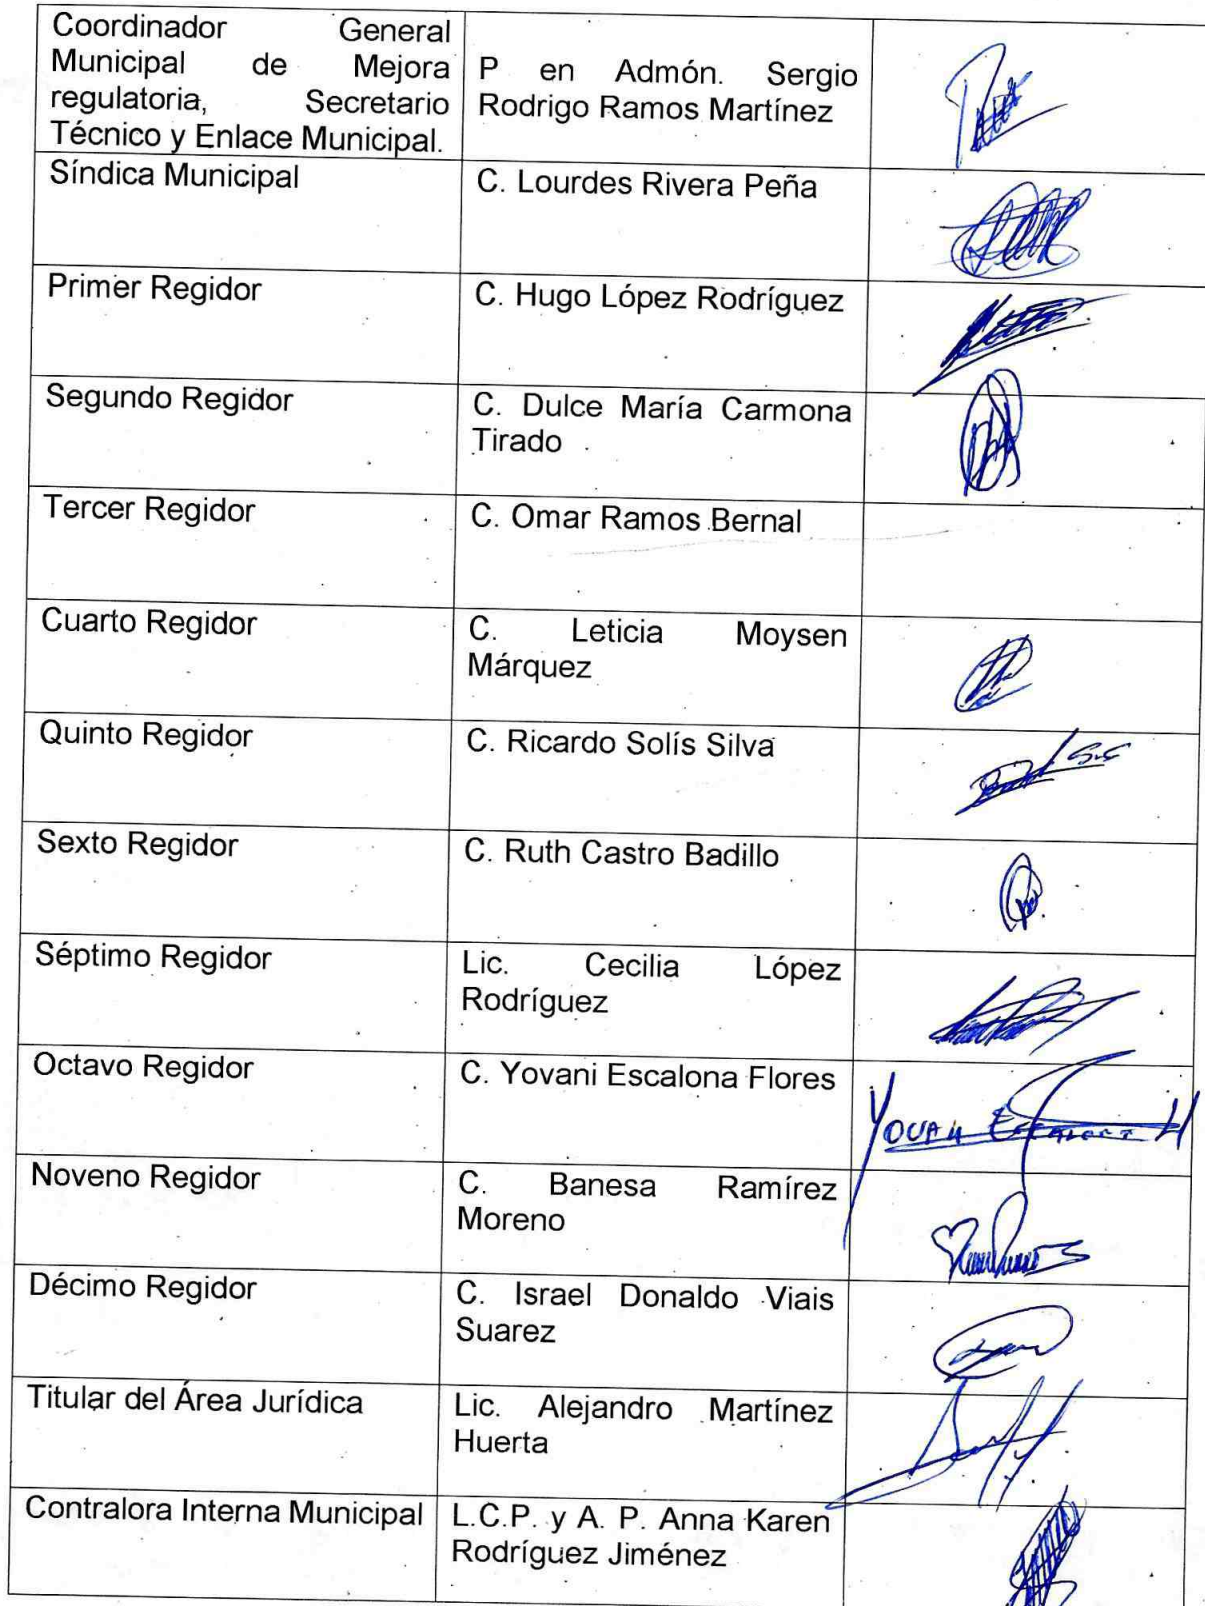 Coordinador General
Municipal de Mejora
regulatoria, Secretario
Técnico y Enlace Municipal.
P en Admón. Sergio
Rodrigo Ramos Martínez
Síndica Municipal
C. Lourdes Rivera Peña
Primer Regidor
C. Hugo López Rodríguez
Segundo Regidor
C. Dulce María Carmona
Tirado
Tercer Regidor
C. Omar Ramos Bernal
Cuarto Regidor
C. Leticia Moysen
Márquez
Quinto Regidor
C. Ricardo Solís Silva
Sexto Regidor
C. Ruth Castro Badillo
Séptimo Regidor
Lic. Cecilia López
Rodríguez
Octavo Regidor
C. Yovani Escalona Flores
Noveno Regidor
C. Banesa Ramírez
Moreno
Décimo Regidor
C. Israel Donaldo Viais
Suarez
Titular del Área Jurídica
Lic. Alejandro Martínez
Huerta
Contralora Interna Municipal
L.C.P. y A. P. Anna Karen
Rodríguez Jiménez